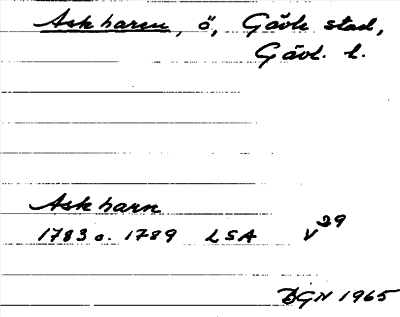 Askharen, ö, Gävle stad,
Gävl. l.
Askharn
1783 o. 1789 LSA V29
DGN 1965